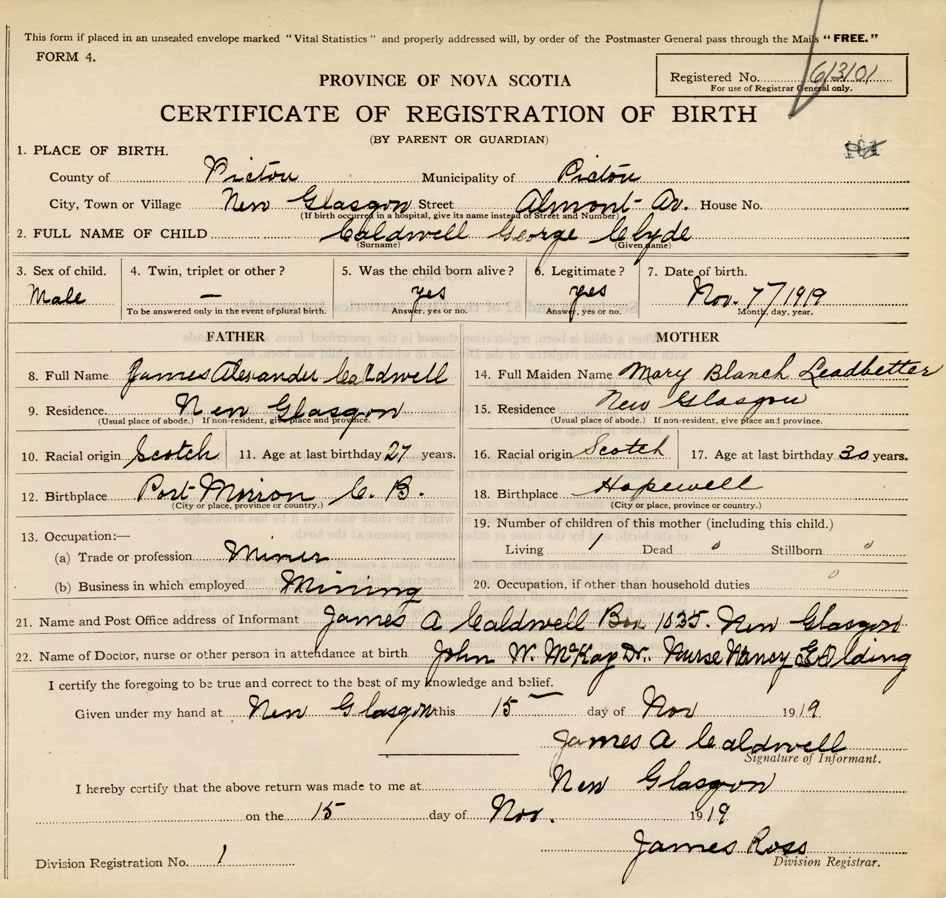 This form if placed in an unsealed envelope marked "Vital Statistics" and properly addressed will, by order of the Postmaster General pass through the Mails "FREE."
FORM 4.
PROVINCE OF NOVA SCOTIA
Registered No. 613101
For use of Registrar General only.
CERTIFICATE OF REGISTRATION OF BIRTH
(BY PARENT OR GUARDIAN)
1. PLACE OF BIRTH.
County of Pictou Municipality of Pictou
City, Town or Village New Glasgow Street Almont Av. House No.
(If birth occurred in a hospital, give its name instead of Street and Number)
2. FULL NAME OF CHILD Caldwell George Clyde
(Surname) (Given name)
3. Sex of child. 4. Twin, triplet or other? 5. Was the child born alive? 6. Legitimate? 7. Date of birth.
Male — yes yes Nov. 7/1919
To be answered only in the event of plural birth. Answer, yes or no. Answer, yes or no. Month, day, year.
FATHER MOTHER
8. Full Name James Alexander Caldwell 14. Full Maiden Name Mary Blanch Leadbetter
9. Residence New Glasgow 15. Residence New Glasgow
(Usual place of abode.) If non-resident, give place and province. (Usual place of abode.) If non-resident, give place and province.
10. Racial origin Scotch 11. Age at last birthday 27 years. 16. Racial origin Scotch 17. Age at last birthday 30 years.
12. Birthplace Port Morion C. B. 18. Birthplace Hopewell
(City or place, province or country.) (City or place, province or country.)
13. Occupation:— 19. Number of children of this mother (including this child.)
(a) Trade or profession Miner Living 1 Dead 0 Stillborn 0
(b) Business in which employed Mining 20. Occupation, if other than household duties 0
21. Name and Post Office address of Informant James A Caldwell Box 1035. New Glasgow
22. Name of Doctor, nurse or other person in attendance at birth John W. McKay Dr. Nurse Nancy
I certify the foregoing to be true and correct to the best of my knowledge and belief.
Given under my hand at New Glasgow this 15 day of Nov 1919
James A Caldwell
Signature of Informant.
I hereby certify that the above return was made to me at New Glasgow
on the 15 day of Nov. 1919
James Ross
Division Registration No. 1 Division Registrar.